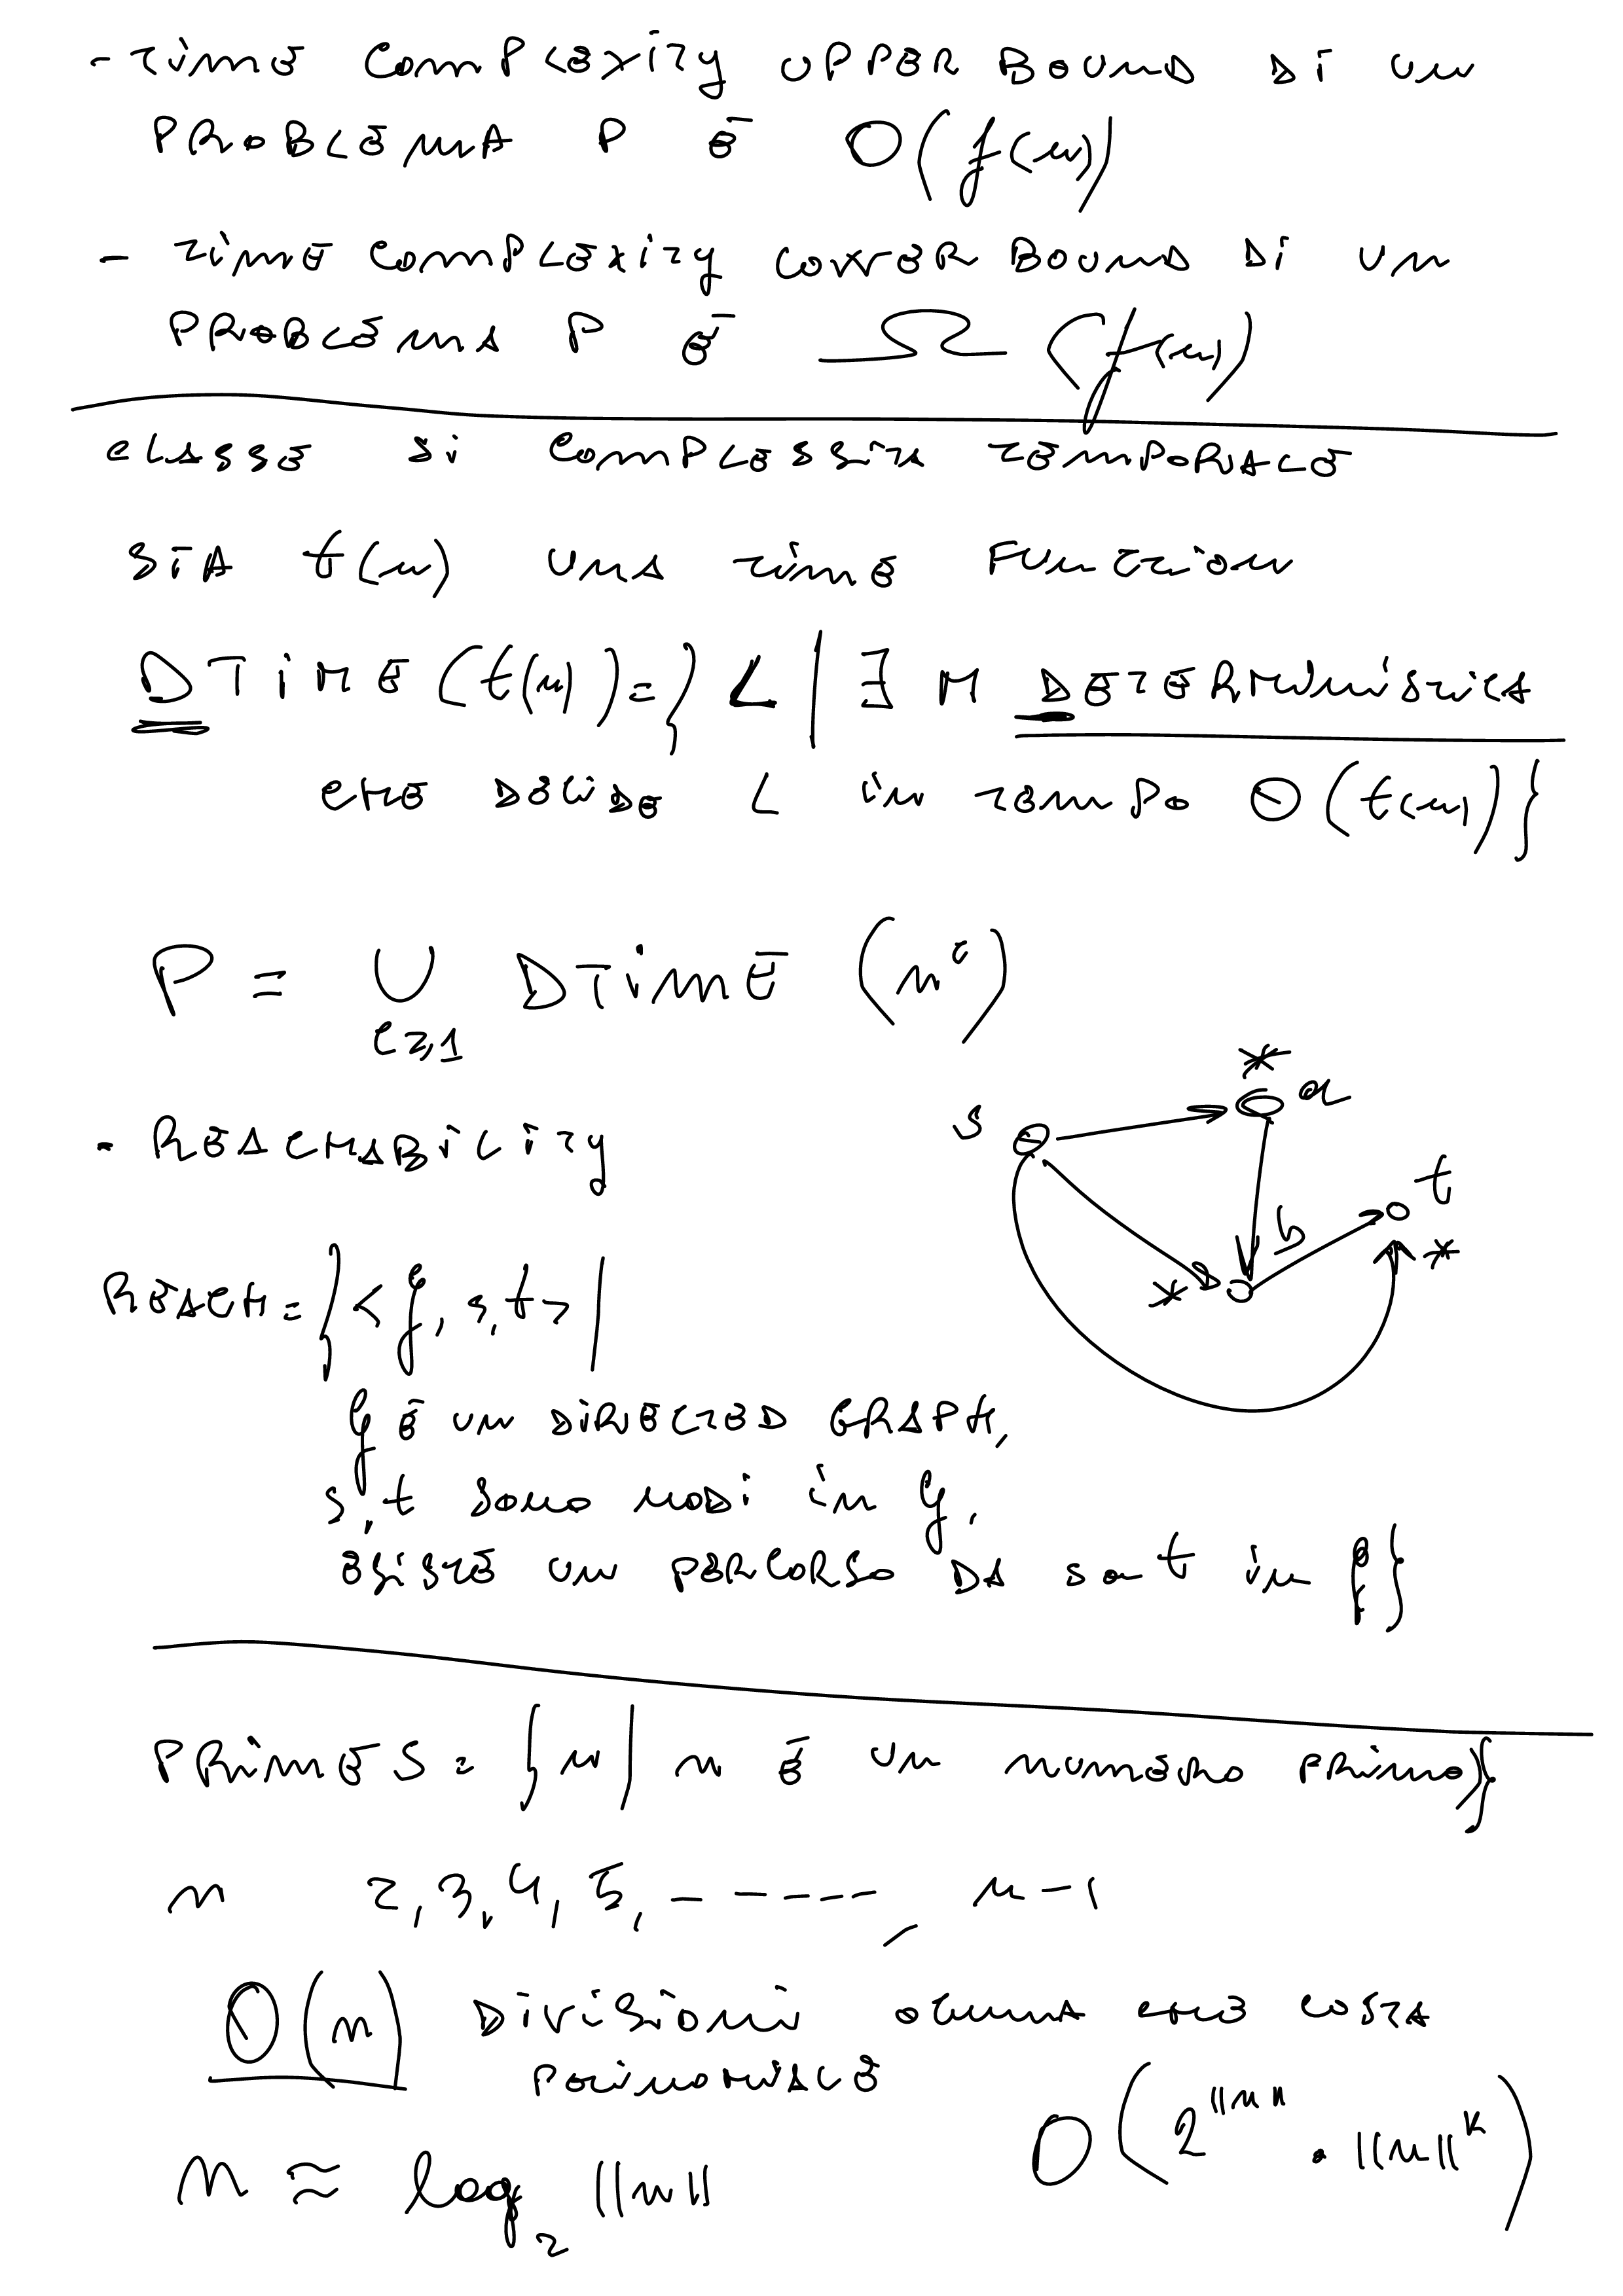 - TIME COMPLEXITY UPPER BOUND DI UN
PROBLEMA P È O(f(n))
- TIME COMPLEXITY LOWER BOUND DI UN
PROBLEMA P È Ω(f(n))
CLASSE DI COMPLESSITÀ TEMPORALE
SIA t(n) UNA TIME FUNCTION
DTIME(t(n)) = { L | ∃ M DETERMINISTICA
CHE DECIDE L IN TEMPO Θ(t(n)) }
P = ∪ DTIME (n^c)
c≥1
*
a
S
- REACHABILITY
t
b
*
*
REACH = { <G, s, t> |
G È UN DIRECTED GRAPH,
s, t SONO NODI IN G,
ESISTE UN PERCORSO DA s a t IN G }
PRIMES = { n | n È UN NUMERO PRIMO }
n 2, 3, 4, 5, - - - - - , n - 1
O(n) DIVISIONI OGNUNA CHE COSTA
POLINOMIALE
O(2^||n|| · ||n||^k)
n ≈ log₂ ||n||